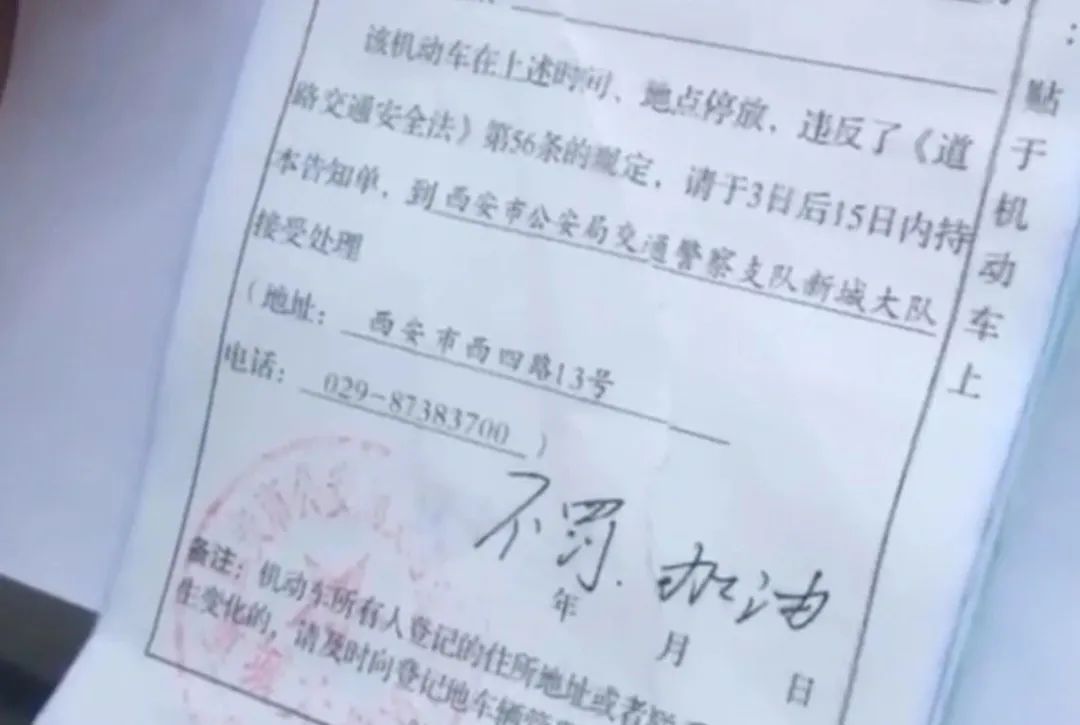 该机动车在上述时间、地点停放，违反了《道
路交通安全法》第56条的规定，请于3日后15日内持
本告知单，到西安市公安局交通警察支队新城大队
接受处理
（地址：西安市西四路13号
电话：029-87383700）
不罚.加油
年 月 日
备注：机动车所有人登记的住所地址或者联
生变化的，请及时向登记地车辆管
：贴于机动车上